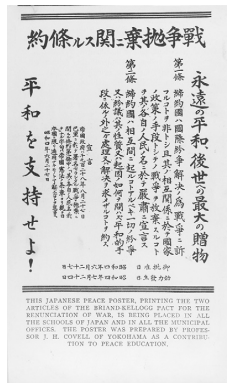 戰爭抛棄ニ関スル條約
永遠の平和、後世への最大の贈物
第一條 締約國ハ國際紛爭解決ノ爲戰爭ニ訴
フルコトヲ非トシ且其ノ相互關係ニ於テ國家
ノ政策ノ手段トシテノ戰爭ヲ抛棄スルコト
ヲ其ノ各自ノ人民ノ名ニ於テ嚴肅ニ宣言ス
第二條 締約國ハ相互間ニ起ルコトアルベキ一切ノ紛爭
又ハ紛議ハ其ノ性質又ハ起因ノ如何ヲ問ハズ平和的手
段ニ依ルノ外之ガ處理又ハ解決ヲ求メザルコトヲ約ス
御批准日 昭和四年六月二十七日
宣言
平和を支持せよ!
THIS JAPANESE PEACE POSTER, PRINTING THE TWO
ARTICLES OF THE BRIAND-KELLOGG PACT FOR THE
RENUNCIATION OF WAR, IS BEING PLACED IN ALL
THE SCHOOLS OF JAPAN AND IN ALL THE MUNICIPAL
OFFICES. THE POSTER WAS PREPARED BY PROFES-
SOR J. H. COVELL OF YOKOHAMA AS A CONTRIBU-
TION TO PEACE EDUCATION.